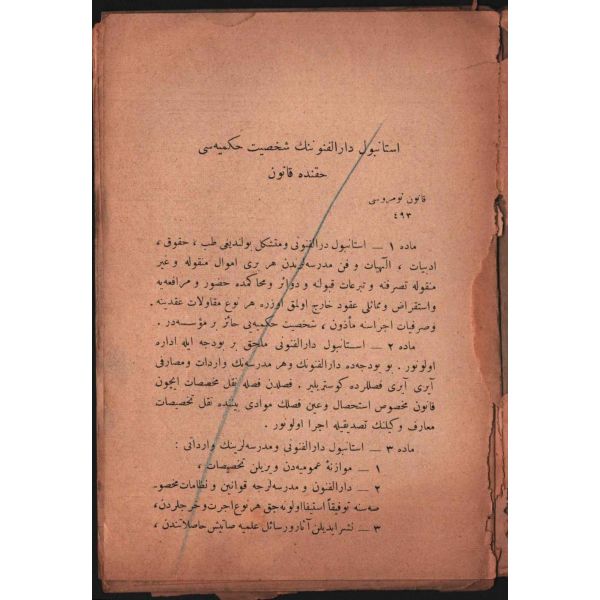 استانبول دارالفنوننك شخصيت حكميه‌سى
حقنده قانون
قانون نومروسى
٤٩٣
ماده ١ — استانبول دارالفنونى ومتشكل بولنديغى طب ، حقوق ،
ادبيات ، الٓهيات و فن مدرسه‌لرندن هر برى اموال منقوله و غير
منقوله تصرفنه و تبرعات قبولنه و دوائر ومحاكمده حضور و مرافعه‌يه
واستقراض ومماثلى عقود خارج اولمق اوزره هر نوع مقاولات عقدينه
وصرفيات اجراسنه مأذون ، شخصيت حكميه‌يى حائز بر مؤسسه‌در .
ماده ٢ — استانبول دارالفنونى ملحق بر بودجه ايله اداره
اولونور . بو بودجه‌ده دارالفنونك وهر مدرسه‌نك واردات ومصارفى
آيرى آيرى فصللرده كوستريلير . فصلدن فصله نقل مخصصات ايچون
قانون مخصوص استحصال وعين فصلك موادى بيننده نقل تخصيصات
معارف وكيلنك تصديقيله اجرا اولونور .
ماده ٣ — استانبول دارالفنونى ومدرسه‌لرينك وارداتى :
١ — موازنهٔ عموميه‌دن ويريلن تخصيصات ،
٢ — دارالفنون و مدرسه‌لرجه قوانين و نظامات مخصو-
صه‌سنه توفيقاً استيفا اولونه‌جق هر نوع اجرت وخرجلردن ،
٣ — نشر ايديلن آثار و رسائل علميه صاتيش حاصلاتندن ،